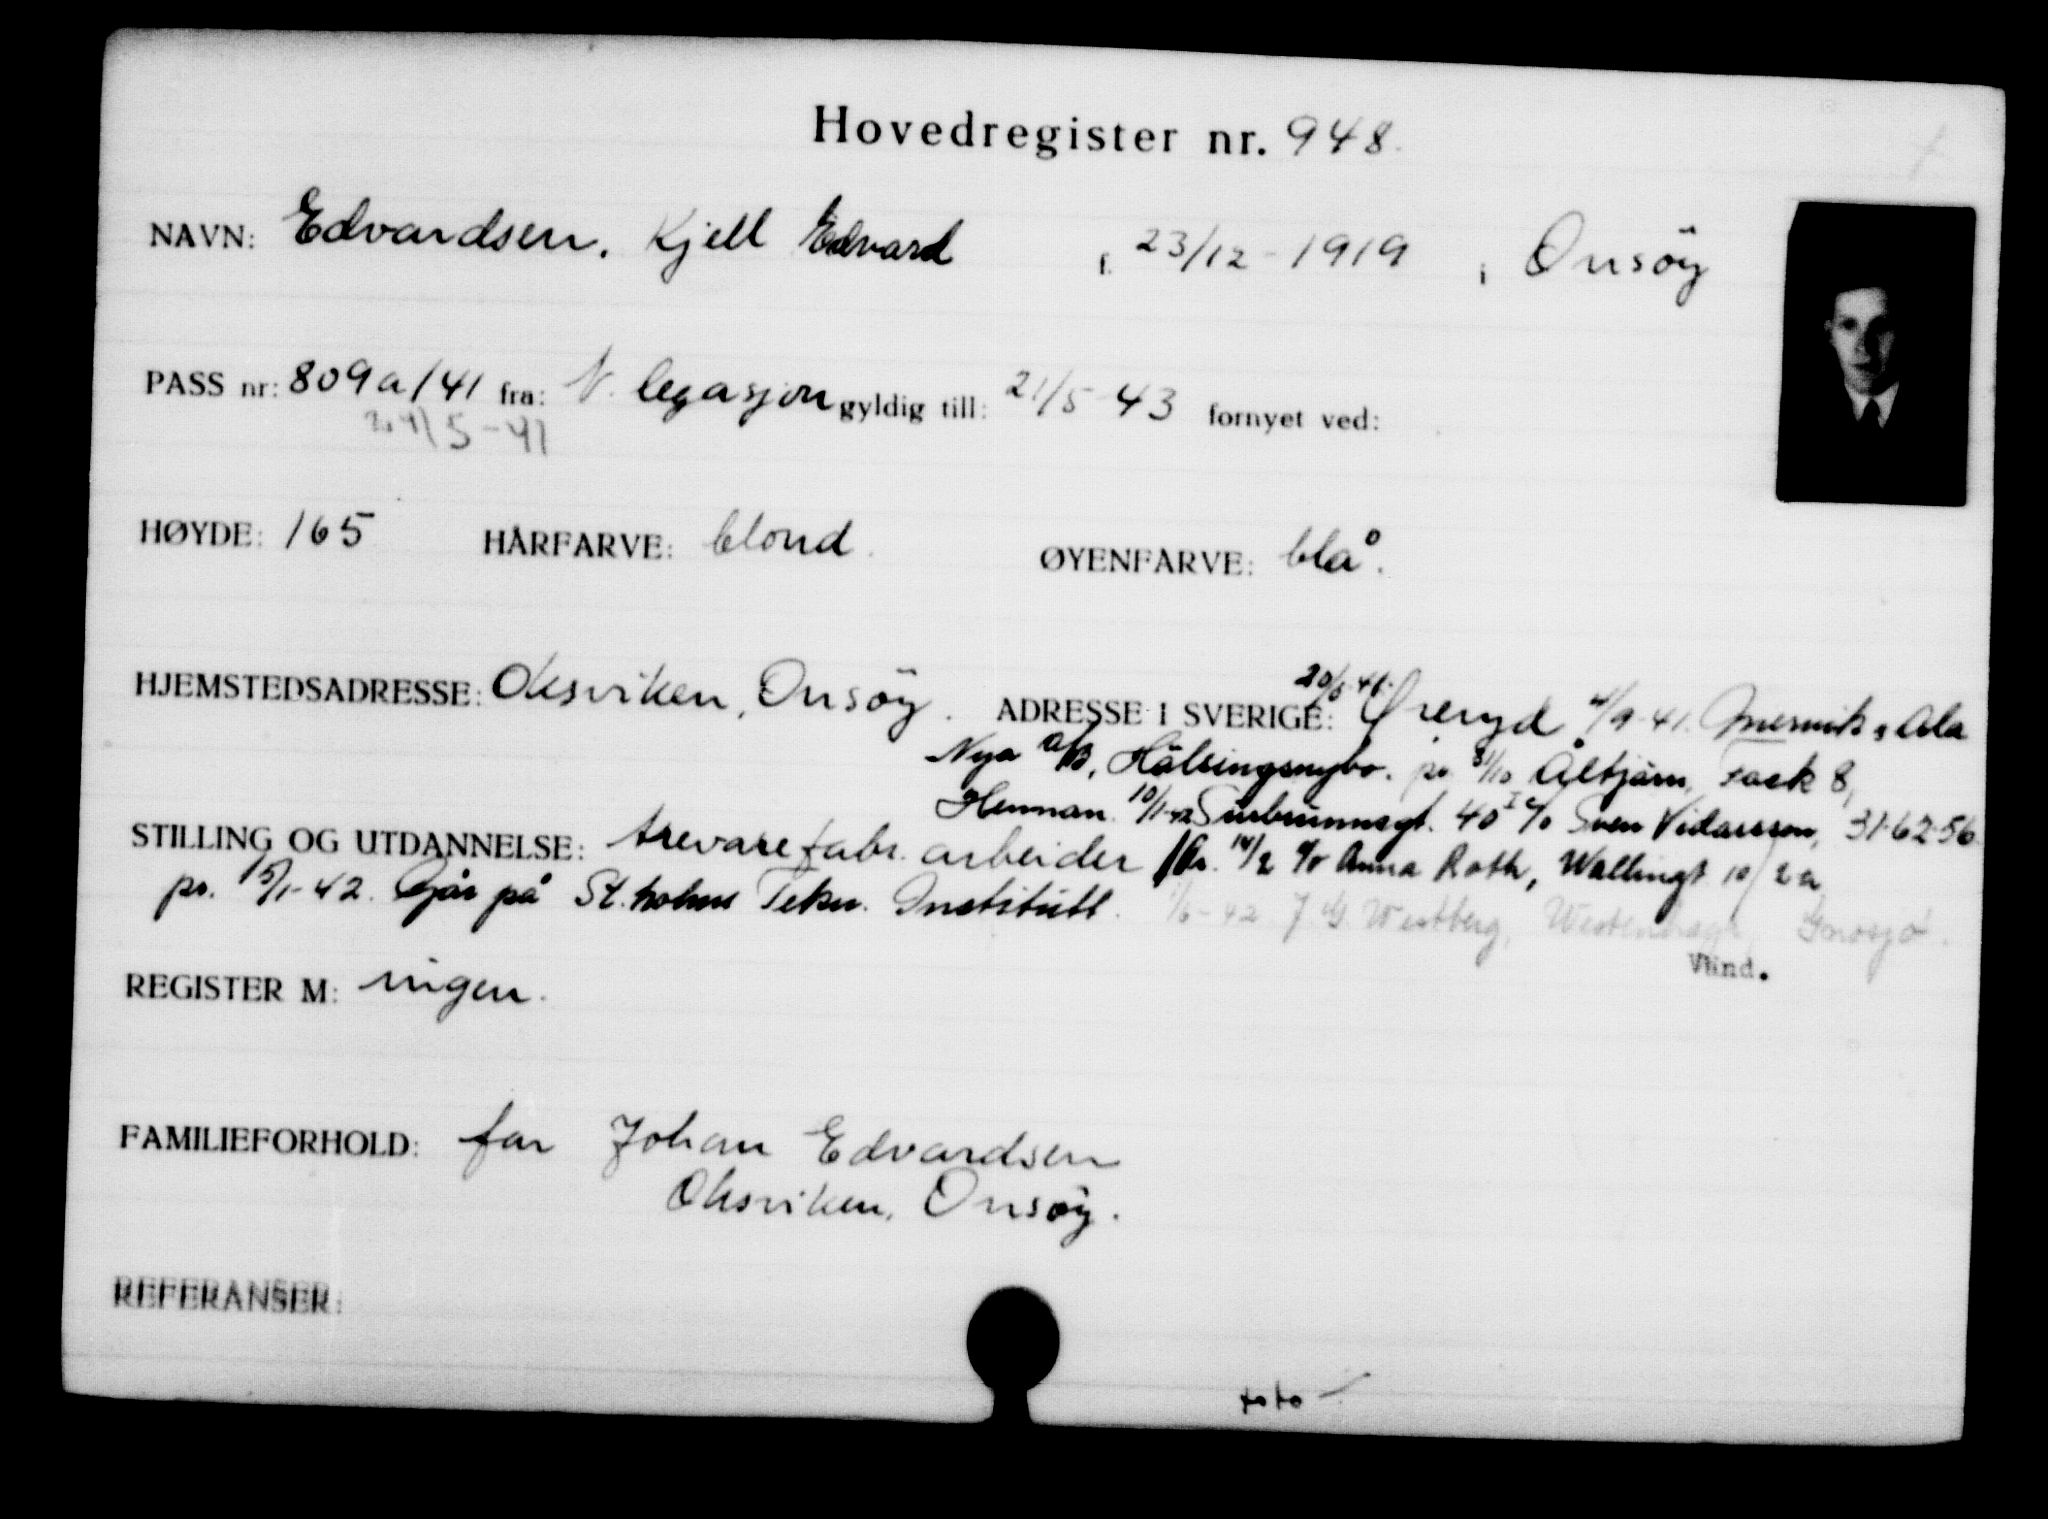 Hovedregister nr. 948.
NAVN: Edvardsen, Kjell Edvard f. 23/12-1919 i Onsöy
PASS nr: 809a/41 fra: N. legasjon gyldig till: 21/5-43 fornyet ved:
/5-41
HØYDE: 165 HÅRFARVE: blond. ØYENFARVE: blå.
HJEMSTEDSADRESSE: Oksviken, Onsöy. ADRESSE I SVERIGE: Öreryd 4/9-41. Ala
Nya A/B, Hälsingenybo. pr. 31/10 Åltjärn, Fack 8,
Hennan. 10/1-42 Surbrunnsgt. 40 I c/o Sven Vidarsson, 31-62-56.
STILLING OG UTDANNELSE: trevarefabr. arbeider Ar. 14/2 c/o Anna Roth, Wallingt 10/2a
pr. 15/1-42. Går på St.holms Tekn. Institutt. 1/6-42 J. G. Westberg, Gnosjö.
Vind.
REGISTER M: ingen.
FAMILIEFORHOLD: far Johan Edvardsen
Oksviken, Onsöy.
REFERANSER:
foto